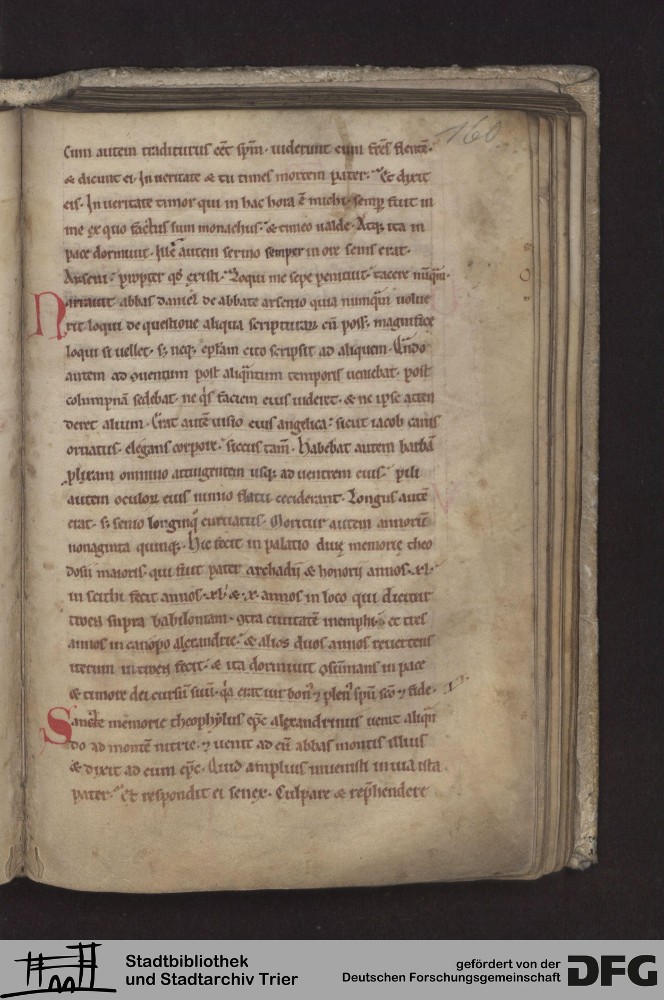 160
Cum autem traditurus eēt spm̄. uiderunt eum fr̄es flentē.
& dicunt ei. In ueritate & tu times mortem pater? Et dixit
eis. In ueritate timor qui in hac hora ē michi. semp̄ fuit in
me ex quo factus sum monachus. & timeo ualde. Atq; ita in
pace dormiuit. autem sermo semper in ore senis erat.
Arseni. propter qd̄ existi? Loqui me sepe penituit. tacere nūq̄m.
Narrauit abbas daniel de abbate arsenio quia numq̄m uolue
rit loqui de questione aliqua scripturaꝝ cū poss; magnifice
loqui si uellet. s; neq; epl̄am cito scripsit ad aliquem. Qn̄do
autem ad ꝯuentum post aliqn̄tum temporis ueniebat. post
columpnā sedebat. ne q̇s faciem eius uideret. & ne ipse atten
deret alium. Erat autē uisio eius angelica. sicut iacob canis
ornatus. elegans corpore. siccus tam̄. Habebat autem barbā
ꝓlixam omnino attingentem usq; ad uentrem eius. pili
autem oculoꝝ eius nimio fletu ceciderant. Longus autē
erat. s; senio longinq̇ curuatus. Moritur autem annorū
nonaginta quinq;. Hic fecit in palatio diuę memorię theo
dosii maioris. qui fuit pater archadii & honorii annos .xl.
in scithi fecit annos .xl. & .x. annos in loco qui dicitur
troen supra babiloniam. ꝯtra ciuitatē memphis. et tres
annos in canopo alexandrie. & alios duos annos reuertens
iterum in troen fecit. & ita dormiuit ꝯsūmans in pace
& timore dei cursū suū. q̇a erat uir bon⁹ ⁊ plen⁹ spū scō ⁊ fide.
Sanctę memorie theophylus ep̄c alexandrinus uenit aliqn̄
do ad montē nitrie. ⁊ uenit ad eū abbas montis illius
& dixit ad eum ep̄c. Quid amplius inuenisti in uia ista
pater? Et respondit ei senex. Culpare & rep̄hendere
Stadtbibliothek
und Stadtarchiv Trier
gefördert von der
Deutschen Forschungsgemeinschaft
DFG